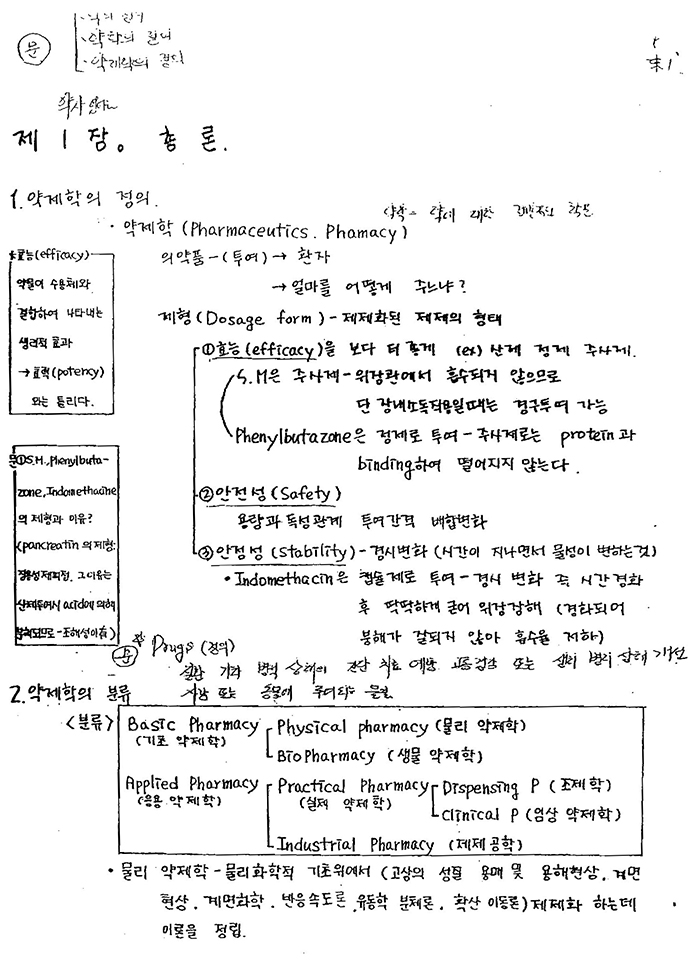 문
· 약학의 정의
· 약제학의 정의
제 1 장。 총 론.
1. 약제학의 정의.
· 약제학 (Pharmaceutics. Phamacy)
의약품 - (투여) → 환자
→ 얼마를 어떻게 주느냐?
제형 (Dosage form) - 제제화된 제제의 형태
① 효능 (efficacy)을 보다 더 좋게 (ex) 산제 정제 주사제.
S.M은 주사제 - 위장관에서 흡수되지 않으므로
단 장내소독작용일때는 경구투여 가능
Phenylbutazone은 정제로 투여 - 주사제로는 protein과
binding하여 떨어지지 않는다.
② 안전성 (Safety)
용량과 독성관계 투여간격 배합변화
③ 안정성 (Stability) - 경시변화 (시간이 지나면서 물성이 변하는것)
• Indomethacin은 캡슐제로 투여 - 경시 변화 즉 시간 경화
후 딱딱하게 굳어 위장장해 (경화되어
붕해가 잘되지 않아 흡수율 저하)
효능(efficacy)
약물이 수용체와
결합하여 나타내는
생리적 효과
→ 효력(potency)
와는 틀리다.
문① S.M., Phenylbuta-
zone, Indomethacine
의 제형과 이유?
(pancreatin의 제형:
장용성제피정. 그이유는
산제투여시 acid에 의해
문 Drugs (정의)
사람 또는 동물에 투여되는 물질
2. 약제학의 분류
<분류>
Basic Pharmacy
(기초 약제학)
Physical pharmacy (물리 약제학)
BioPharmacy (생물 약제학)
Applied Pharmacy
(응용 약제학)
Practical Pharmacy
(실제 약제학)
Dispensing P (조제학)
Clinical P (임상 약제학)
Industrial Pharmacy (제제공학)
• 물리 약제학 - 물리화학적 기초위에서 (고상의 성질 용매 및 용해현상. 계면
현상. 계면화학. 반응속도론. 유동학 분체론. 확산 이동론) 제제화 하는데
이론을 정립.